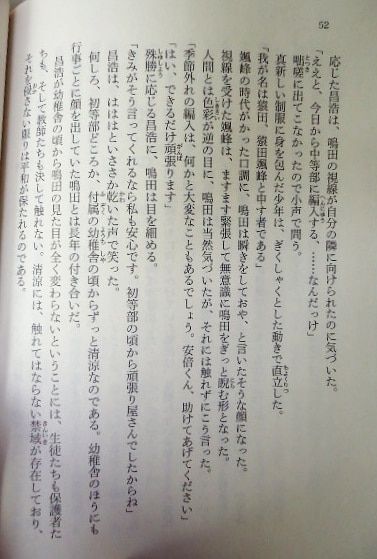 52
応じた昌浩は、鳴田の視線が自分の隣に向けられたのに気づいた。
「ええと、今日から中等部に編入する、……なんだっけ」
咄嗟に出てこなかったので小声で問う。
真新しい制服に身を包んだ少年は、ぎくしゃくとした動きで直立した。
「我が名は猿田、猿田颯峰と申す者である」
颯峰の時代がかった口調に、鳴田は瞬きをしておや、と言いたそうな顔になった。
視線を受けた颯峰は、ますます緊張して無意識に鳴田をぎっと睨む形となった。
人間とは色彩が逆の目に、鳴田は当然気づいたが、それには触れずにこう言った。
「季節外れの編入は、何かと大変なこともあるでしょう。安倍くん、助けてあげてください」
「はい、できるだけ頑張ります」
殊勝に応じる昌浩に、鳴田は目を細める。
「きみがそう言ってくれるなら私も安心です。初等部の頃から頑張り屋さんでしたからね」
昌浩は、ははははといささか乾いた声で笑った。
何しろ、初等部どころか、付属の幼稚舎の頃からずっと清涼なのである。幼稚舎のほうにも
行事ごとに顔を出していた鳴田とは長年の付き合いだ。
昌浩が幼稚舎の頃から鳴田の見た目が全く変わらないということには、生徒たちも保護者た
ちも、そして教師たちも決して触れない。清涼には、触れてはならない禁域が存在しており、
それを侵さない限りは平和が保たれるのである。